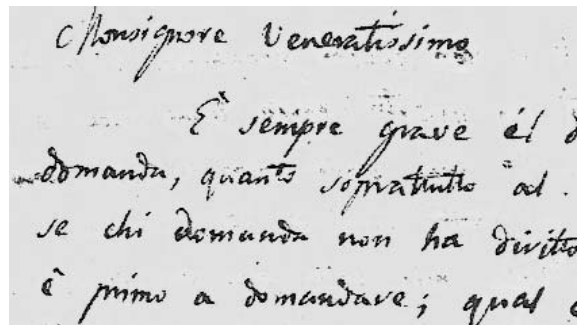 Monsignore Veneratissimo
È sempre grave il d
domanda, quanto soprattutto al
se chi domanda non ha diritto
è primo a domandare; qual è